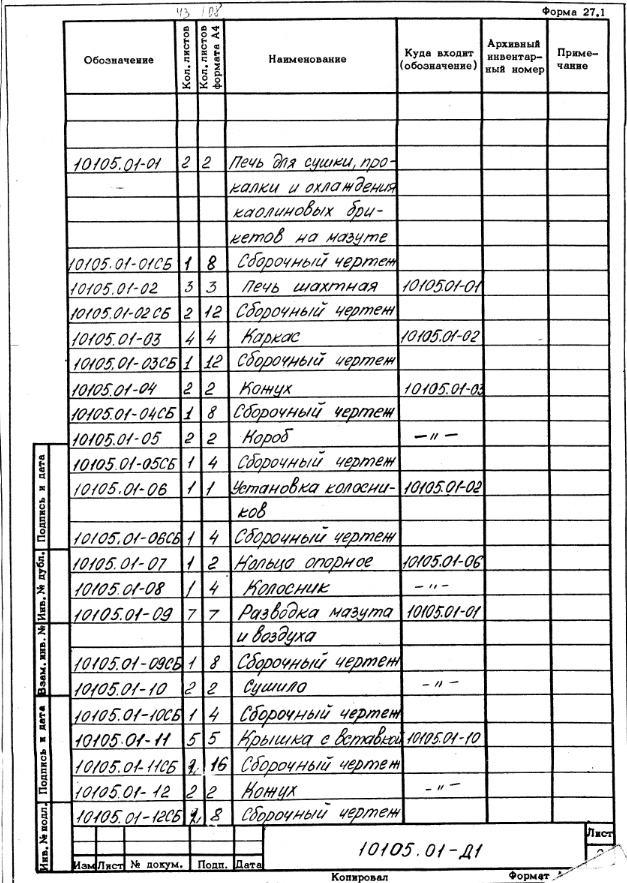 43 108
Форма 27.1
Обозначение Кол. листов Кол. листов формата А4 Наименование Куда входит (обозначение) Архивный инвентарный номер Примечание
10105.01-01 2 2 Печь для сушки, про-
калки и охлаждения
каолиновых бри-
кетов на мазуте
10105.01-01СБ 1 8 Сборочный чертеж
10105.01-02 3 3 Печь шахтная 10105.01-01
10105.01-02СБ 2 12 Сборочный чертеж
10105.01-03 4 4 Каркас 10105.01-02
10105.01-03СБ 1 12 Сборочный чертеж
10105.01-04 2 2 Кожух 10105.01-03
10105.01-04СБ 1 8 Сборочный чертеж
10105.01-05 2 2 Короб —"—
10105.01-05СБ 1 4 Сборочный чертеж
10105.01-06 1 1 Установка колосни- 10105.01-02
ков
10105.01-06СБ 1 4 Сборочный чертеж
10105.01-07 1 2 Кольцо опорное 10105.01-06
10105.01-08 1 4 Колосник —"—
10105.01-09 7 7 Разводка мазута 10105.01-01
и воздуха
10105.01-09СБ 1 8 Сборочный чертеж
10105.01-10 2 2 Сушило —"—
10105.01-10СБ 1 4 Сборочный чертеж
10105.01-11 5 5 Крышка с вставкой 10105.01-10
10105.01-11СБ 2 16 Сборочный чертеж
10105.01-12 2 2 Кожух —"—
10105.01-12СБ 2 8 Сборочный чертеж
Инв. № подл. Подпись и дата Взам. инв. № Инв. № дубл. Подпись и дата
Изм Лист № докум. Подп. Дата
10105.01-Д1
Лист
Копировал Формат